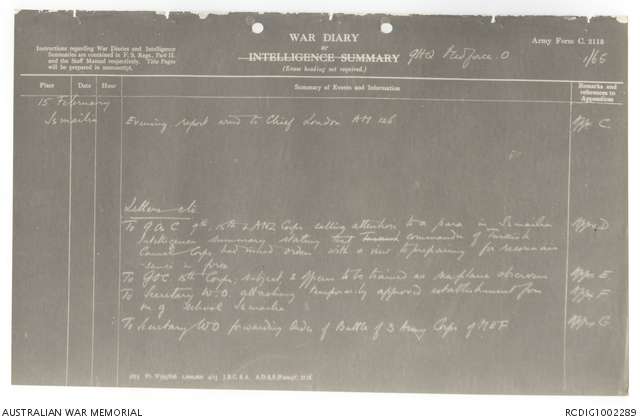 WAR DIARY
or
INTELLIGENCE SUMMARY
(Erase heading not required.)
Instructions regarding War Diaries and Intelligence
Summaries are contained in F. S. Regs., Part II.
and the Staff Manual respectively. Title Pages
will be prepared in manuscript.
GHQ Medforce. O
Army Form C. 2118
1/65
Place Date Hour Summary of Events and Information Remarks and references to Appendices
15 February
Ismailia Evening report wired to Chief London AM 126 Appx C.
Letters etc
To G.O.C 9th, 15th & ANZ Corps calling attention to a para in Ismailia Appx D
Intelligence summary stating that commander of Turkish
Canal Corps had issued orders with a view to preparing for reconnais
sance in force
To GOC 15th Corps, subject 2 officers to be trained as seaplane observers Appx E
To Secretary W.O. attaching temporarily approved establishment for Appx F
m.g School Ismailia
To Secretary WO forwarding Order of Battle of 3 Army Corps of MEF Appx G
AUSTRALIAN WAR MEMORIAL
RCDIG1002289